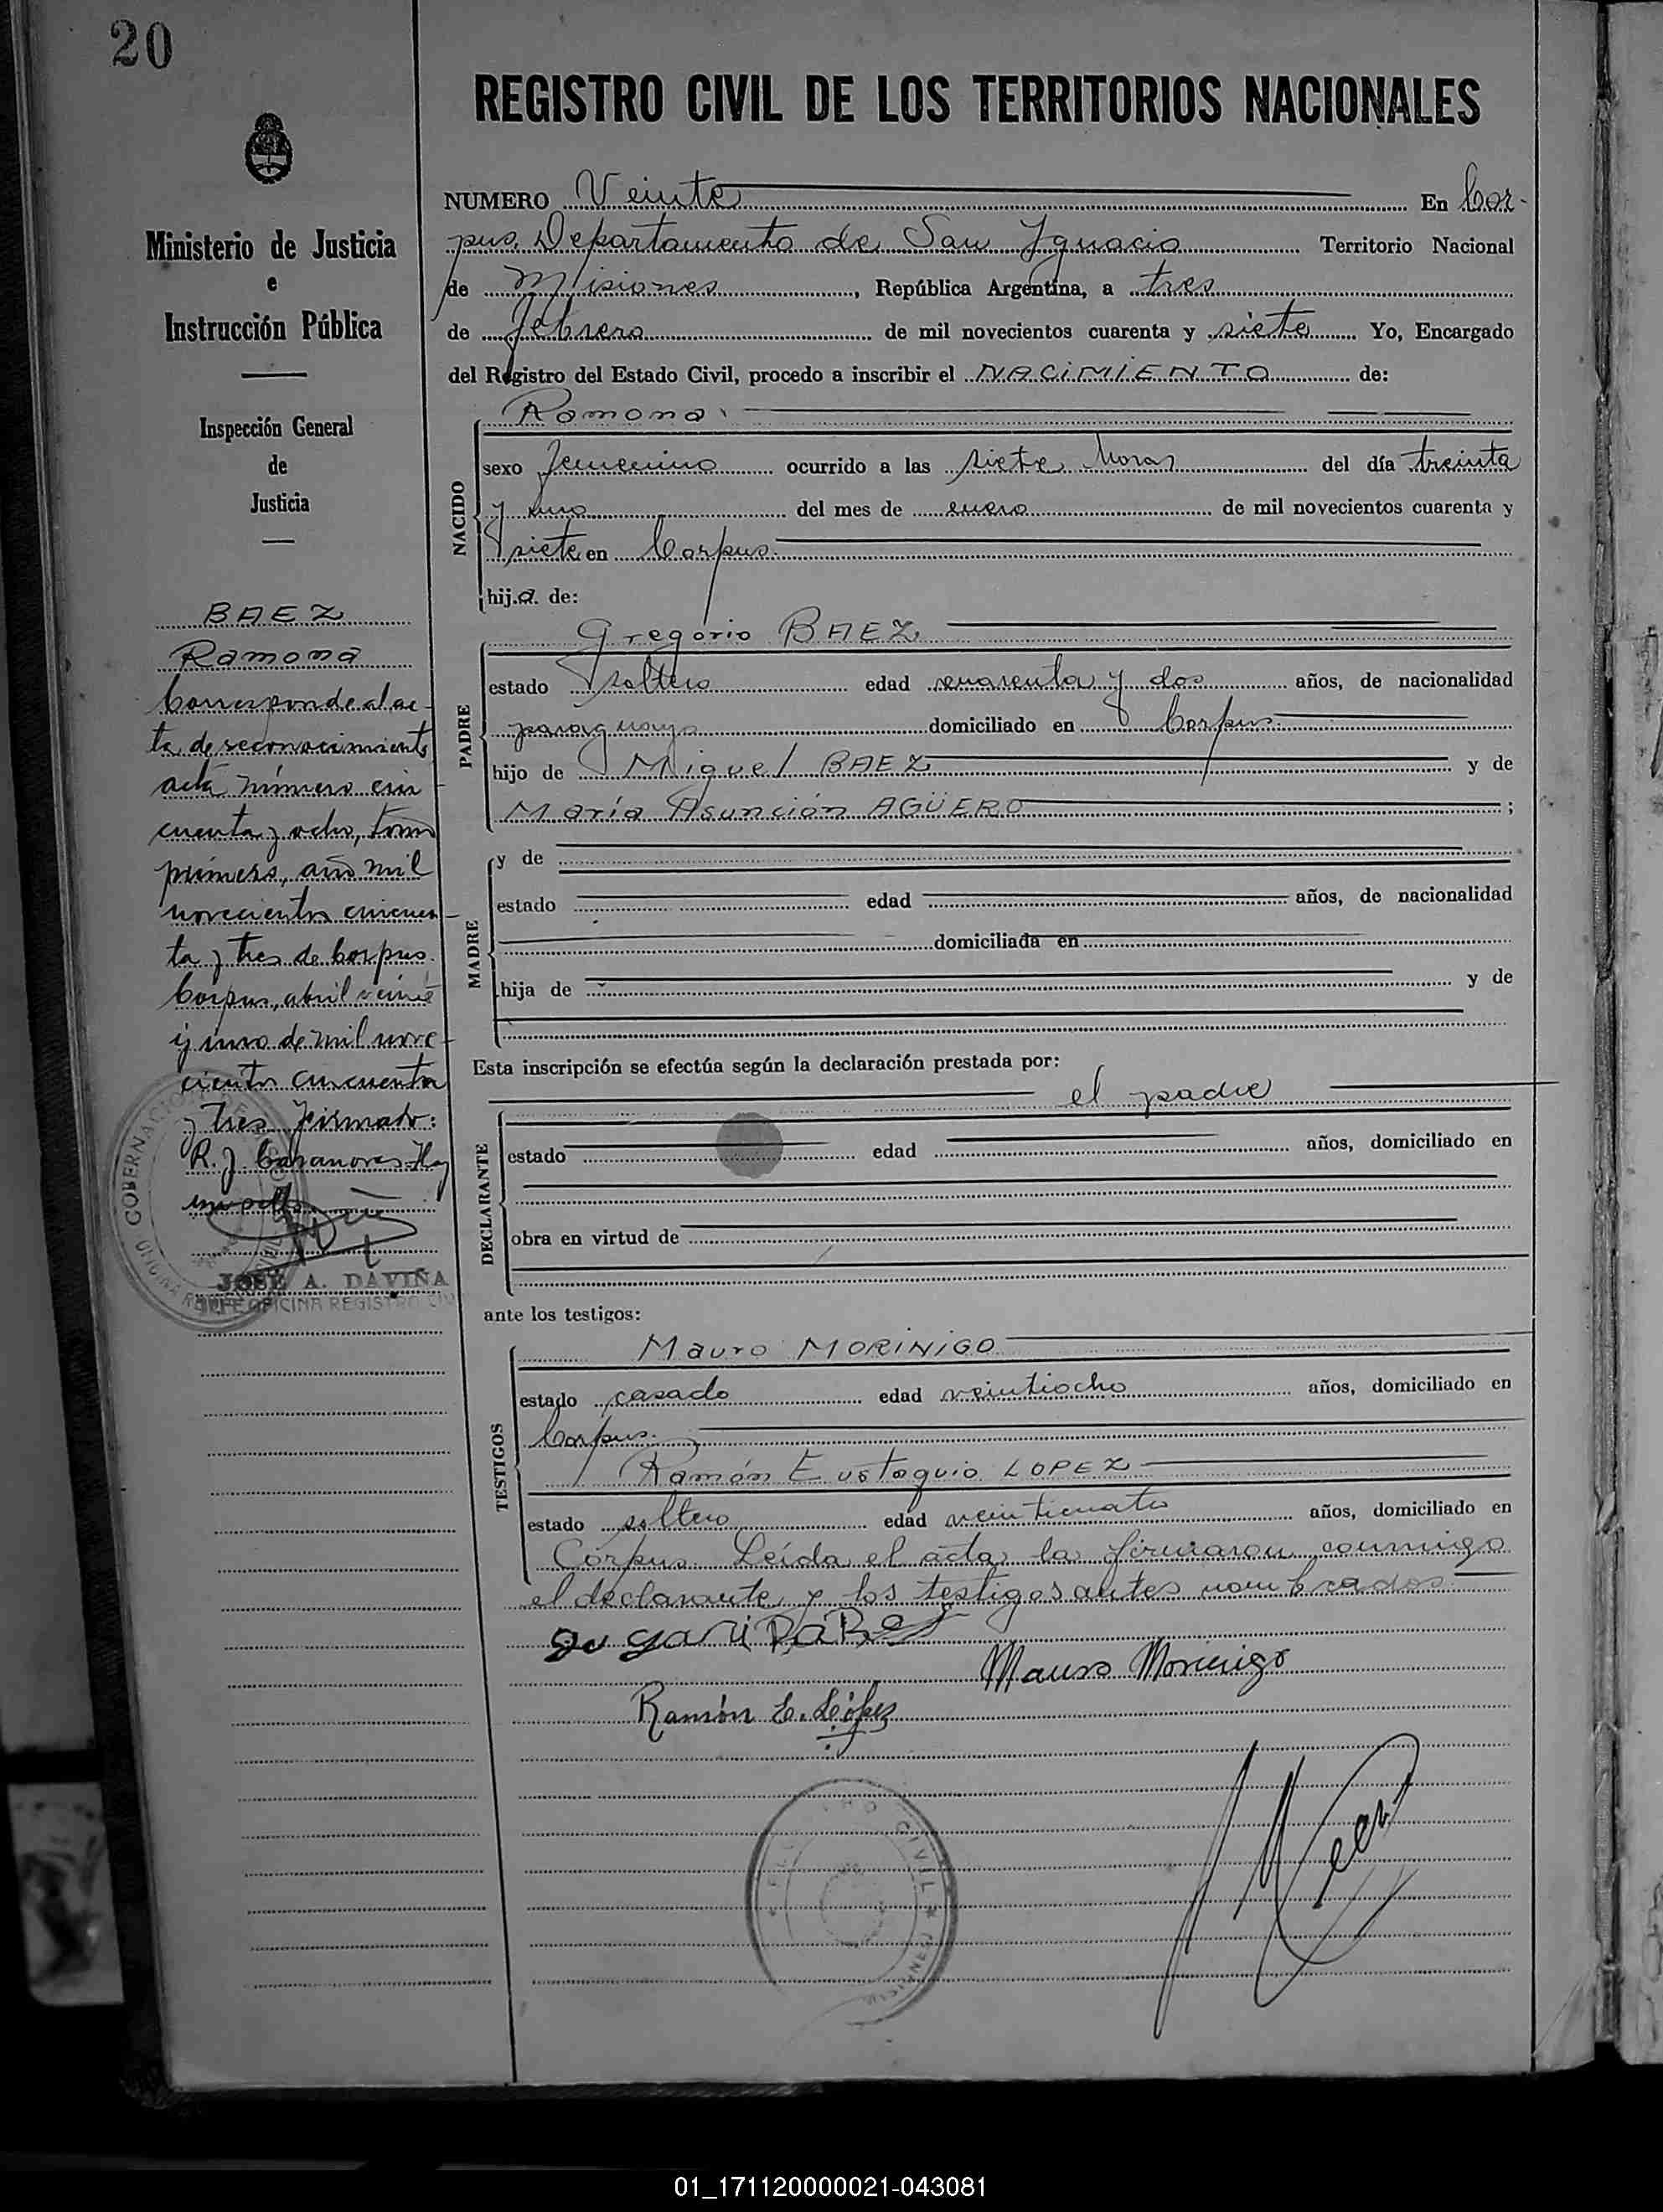 20
REGISTRO CIVIL DE LOS TERRITORIOS NACIONALES
Ministerio de Justicia
e
Instrucción Pública
Inspección General
de
Justicia
BAEZ
Ramona
Corresponde al ac-
ta de reconocimiento
acta número cin
cuenta y ocho, tomo
primero, año mil
novecientos cincuen-
ta y tres de Corpus.
Corpus, abril veinte
y uno de mil nove-
cientos cincuenta
y tres Firmado:
R. J. Casanovas
JOSÉ A. DAVIÑA
JEFE OFICINA REGISTRO CIVIL
NUMERO Veinte En Cor-
pus Departamento de San Ignacio Territorio Nacional
de Misiones, República Argentina, a tres
de febrero de mil novecientos cuarenta y siete Yo, Encargado
del Registro del Estado Civil, procedo a inscribir el NACIMIENTO de:
NACIDO
Ramona
sexo femenino ocurrido a las siete horas del día treinta
y uno del mes de enero de mil novecientos cuarenta y
siete en Corpus.
hija de:
PADRE
Gregorio BAEZ
estado soltero edad cuarenta y dos años, de nacionalidad
paraguaya domiciliado en Corpus.
hijo de Miguel BAEZ y de
María Asunción AGÜERO ;
MADRE
y de
estado edad años, de nacionalidad
domiciliada en
hija de y de
Esta inscripción se efectúa según la declaración prestada por:
el padre
DECLARANTE
estado edad años, domiciliado en
obra en virtud de
ante los testigos:
TESTIGOS
Mauro MORINIGO
estado casado edad veintiocho años, domiciliado en
Corpus.
Ramón Eustaquio LOPEZ
estado soltero edad veinticuatro años, domiciliado en
Corpus. Leída el acta la firmaron conmigo
el declarante y los testigos antes nombrados
Mauro Morinigo
Ramón E. López
CIVIL
01_171120000021-043081